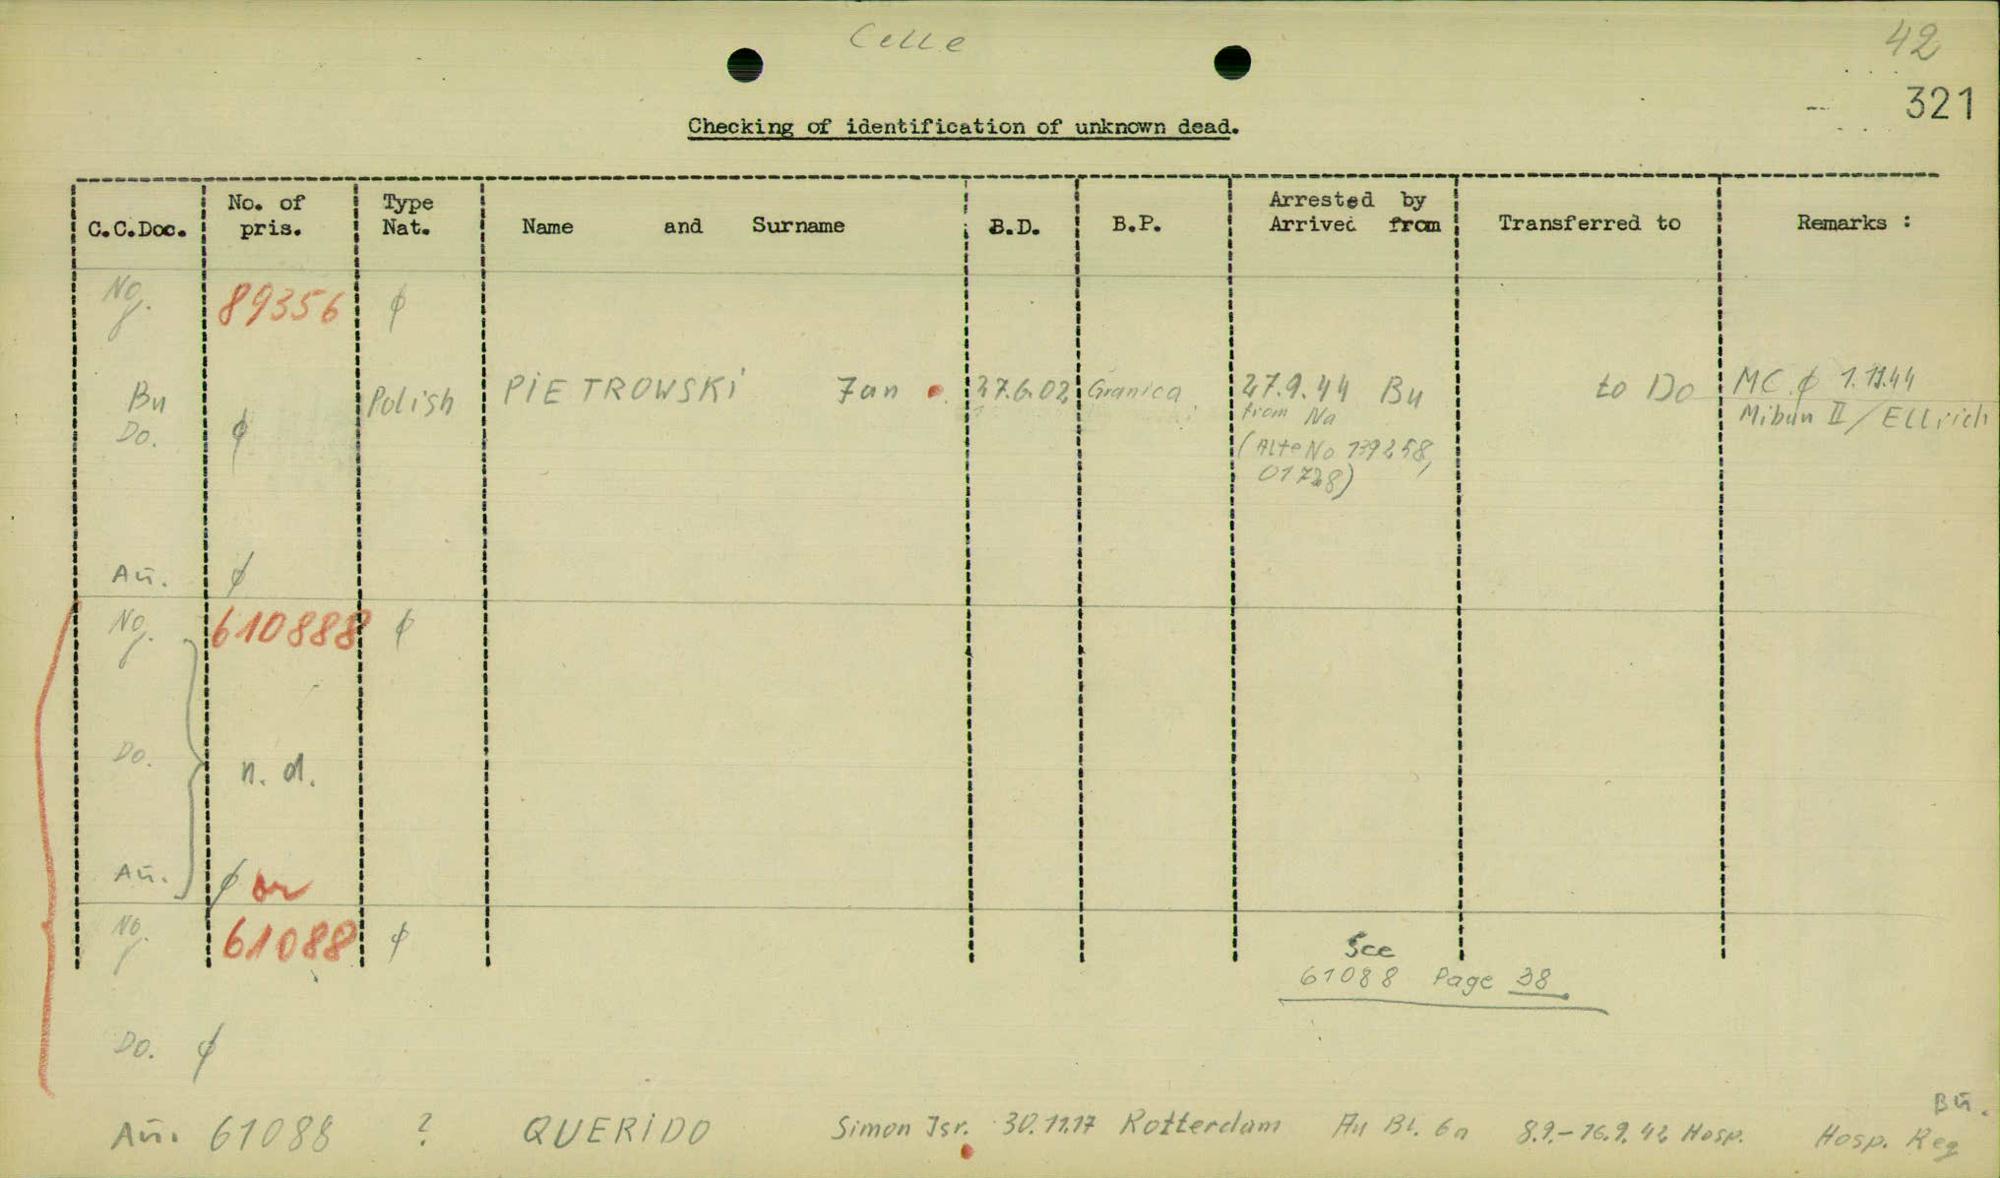 Celle
42
321
Checking of identification of unknown dead.
C.C.Doc. No. of pris. Type Nat. Name and Surname B.D. B.P. Arrested by Arrived from Transferred to Remarks :
Ng. 89356 ϕ
Bu Polish PIETROWSKI Jan 27.6.02 Granica 27.9.44 Bu to Do MC ϕ 1.11.44
Do. ϕ from Na Mibau II/Ellrich
(Alte No 139258,
01728)
Au. ϕ
Ng. 610888 ϕ
Do. n. d.
Au. ϕ or
Ng. 61088 ϕ
See
61088 Page 38
Do. ϕ
Au. 61088 ? QUERIDO Simon Isr. 30.11.17 Rotterdam Au Bl. 6a 8.9.-16.9.42 Hosp. Hosp. Reg